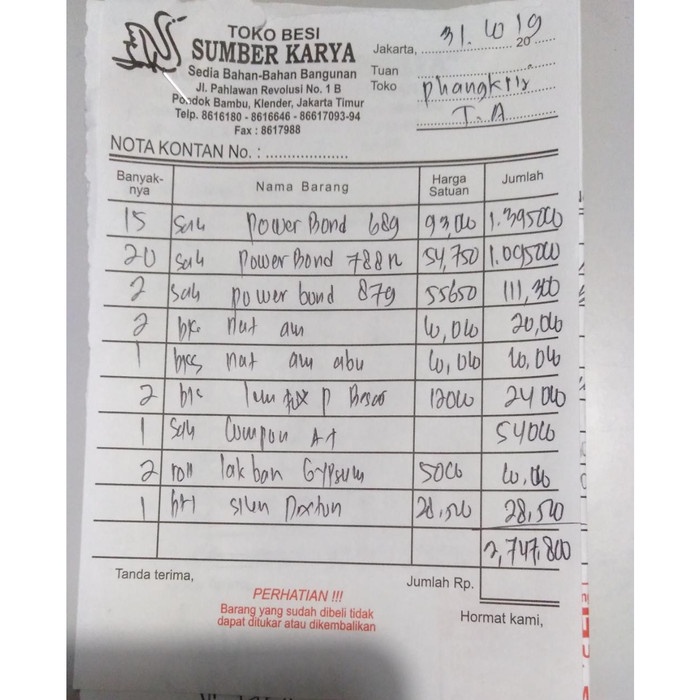 TOKO BESI
SUMBER KARYA
Sedia Bahan-Bahan Bangunan
Jl. Pahlawan Revolusi No. 1 B
Pondok Bambu, Klender, Jakarta Timur
Telp. 8616180 - 8616646 - 86617093-94
Fax : 8617988
Jakarta, 31. 10 20 19
Tuan
Toko
T.A
NOTA KONTAN No. :
Banyak-nya Nama Barang Harga Satuan Jumlah
15 Sak Power Bond 689 93,000 1.395000
20 Sak Power Bond 788n 54,750 1.095000
2 Sak power bond 879 55650 111,300
2 nat 10,000 20,000
1 nat abu 10,000 10,000
2 12000 24000
1 Sak Compon A+ 54000
2 roll lakban Gypsum 5000 10,000
1 28,500 28,500
2,747,800
Tanda terima, Jumlah Rp.
PERHATIAN !!!
Barang yang sudah dibeli tidak
dapat ditukar atau dikembalikan
Hormat kami,